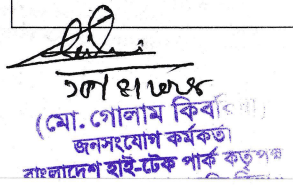 (মো. গোলাম কিবরিয়া)
জনসংযোগ কর্মকর্তা
বাংলাদেশ হাই-টেক পার্ক কর্তৃপক্ষ